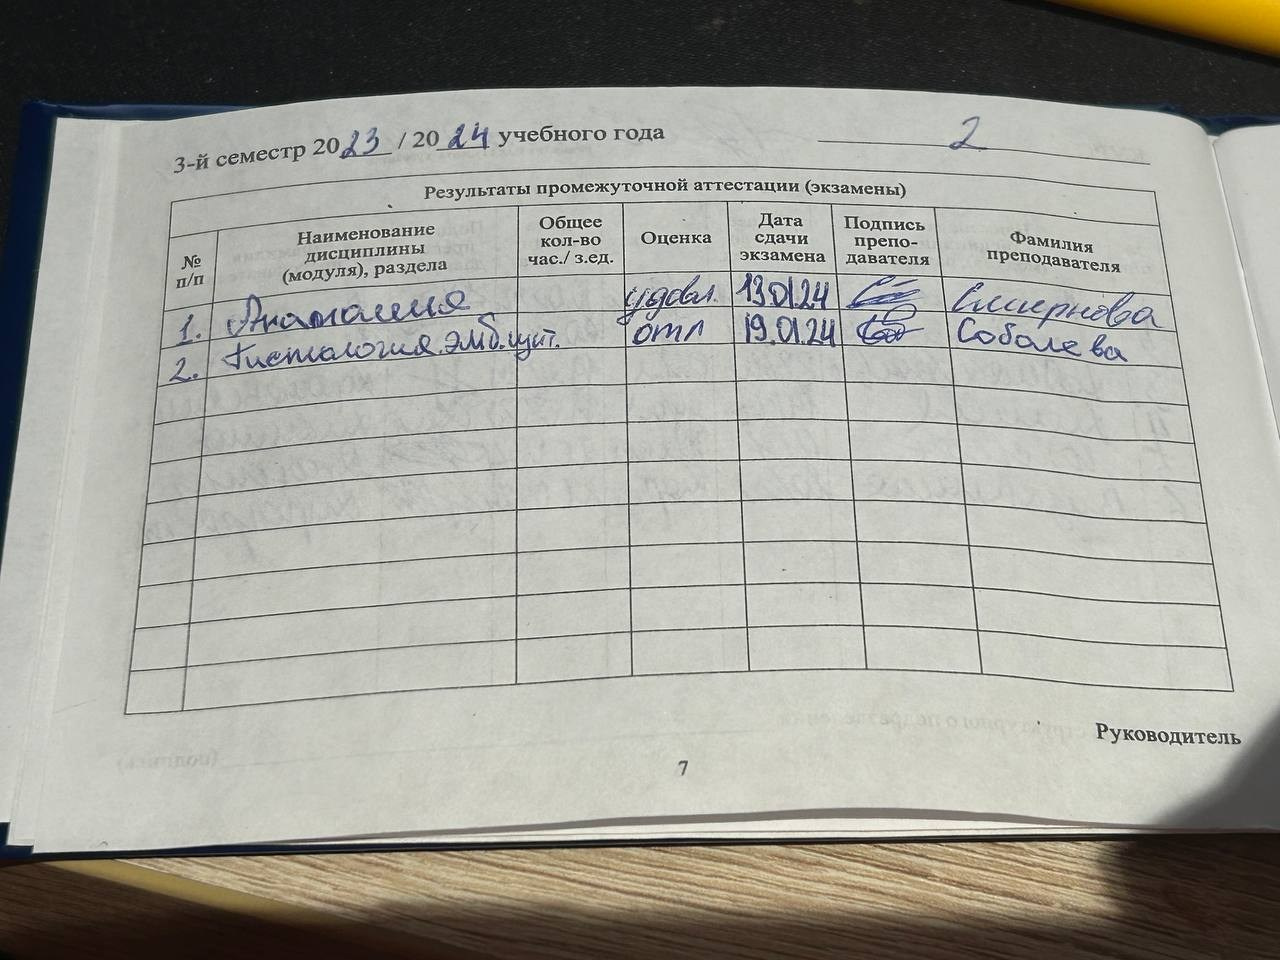 3-й семестр 2023 / 2024 учебного года 2
Результаты промежуточной аттестации (экзамены)
№ п/п Наименование дисциплины (модуля), раздела Общее кол-во час./ з.ед. Оценка Дата сдачи экзамена Подпись препо-давателя Фамилия преподавателя
1. Анатомия удовл. 13.01.24 Смирнова
2. Гистология.эмб.цит. отл 19.01.24 Соболева
Руководитель
7